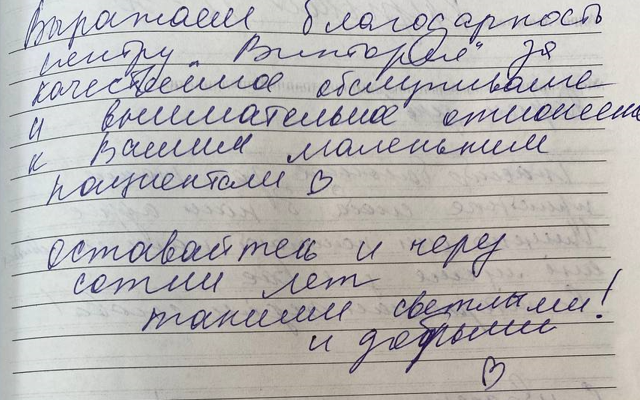 Выражаем благодарность
центру "Виктория" за
качественное обслуживание
и внимательное отношение
к Вашим маленьким
пациентам ♡
оставайтесь и через
сотни лет
такими светлыми!
и добрыми
♡